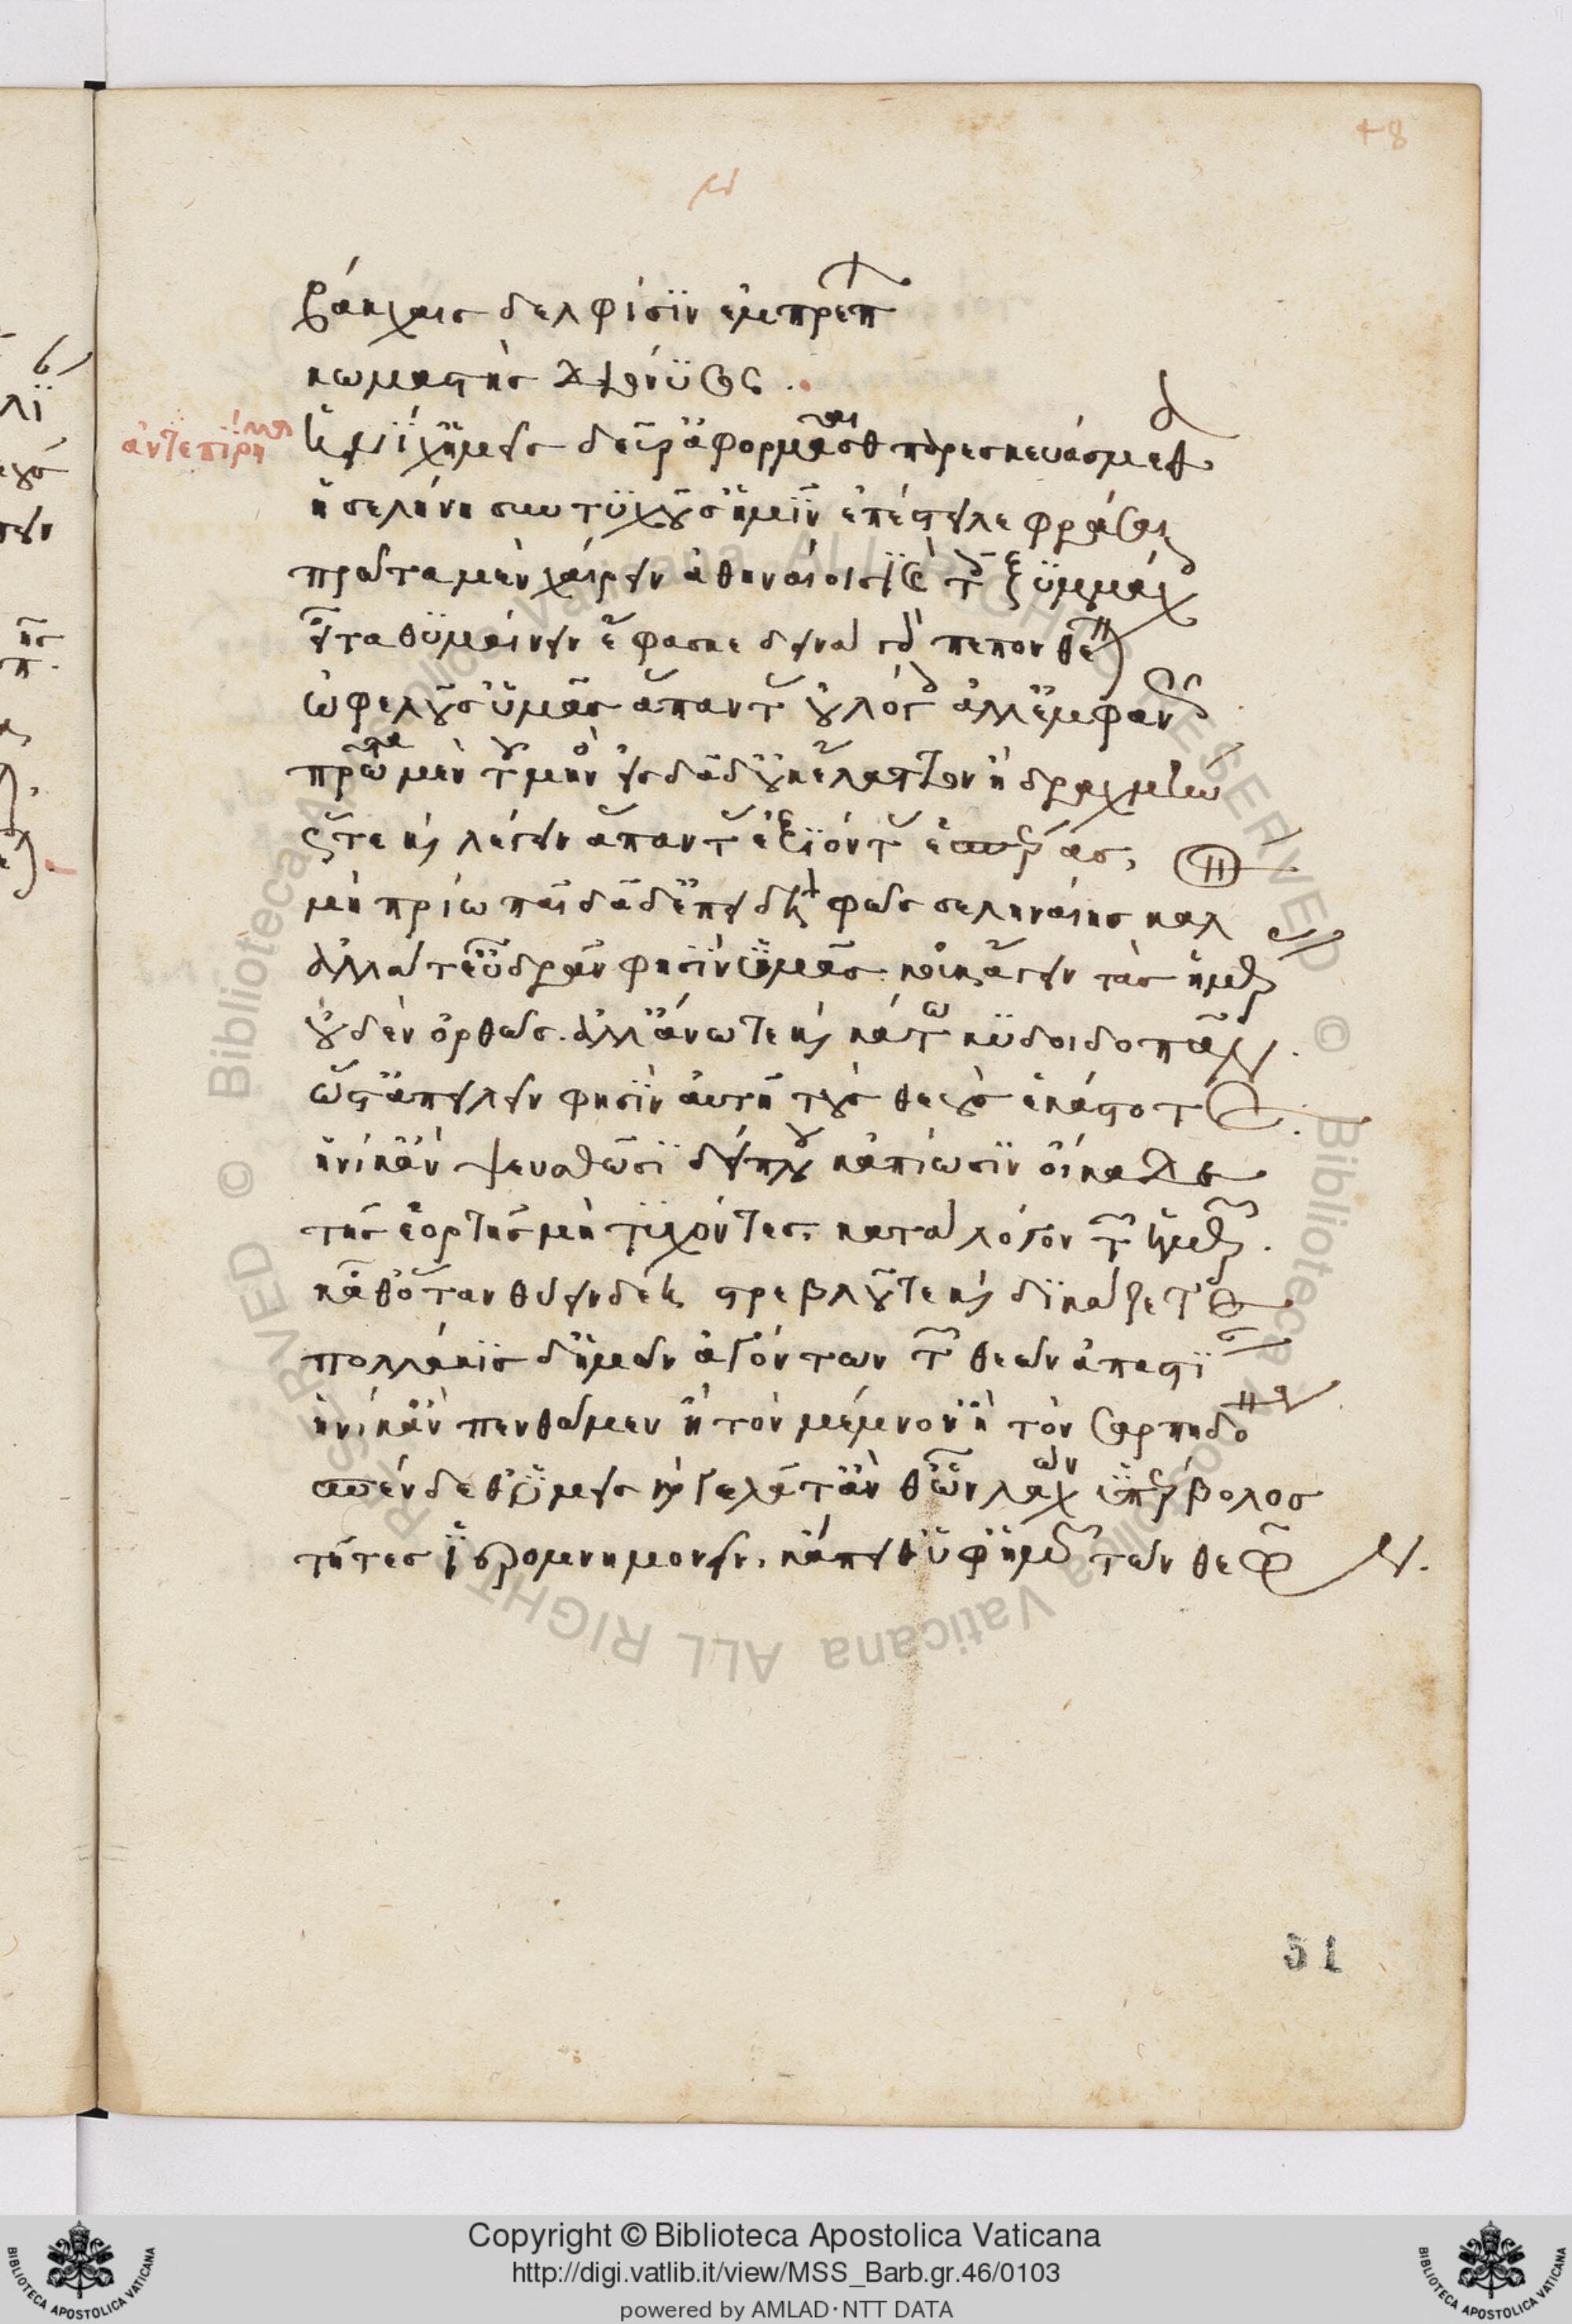 48
μδ
βάκχαις δελφίσιν ἐμπρέπων
κωμαστὴς Διόνυσος.
ἀντεπίρρημα
ἡνίχ' ἡμεῖς δεῦρ' ἀφορμᾶσθαι παρεσκευάσμεθα
ἡ σελήνη συντυχοῦσ' ἡμῖν ἐπέστειλε φράσαι
πρῶτα μὲν χαίρειν ἀθηναίοισι καὶ τοῖς ξυμμάχοις
εἶτα θυμαίνειν ἔφασκε δεινὰ γὰρ πεπονθέναι
ὠφελοῦσ' ὑμᾶς ἅπαντας οὐ λόγοις ἀλλ' ἐμφανῶς
πρῶτα μὲν τοῦ μηνὸς εἰς δᾷδ' οὐκ ἔλαττον ἢ δραχμὴν
ὥστε καὶ λέγειν ἅπαντας ἐξιόντας ἑσπέρας,
μὴ πρίω παῖ δᾷδ' ἐπειδὴ φῶς σεληναίης καλὸν
ἄλλα τ' εὖ δρᾶν φησὶν ὑμᾶς. κοὐκ ἄγειν τὰς ἡμέρας
οὐδὲν ὀρθῶς. ἀλλ' ἄνω τε καὶ κάτω κυδοιδοπᾶν.
ὥστ' ἀπειλεῖν φησὶν αὐτῇ τοὺς θεοὺς ἑκάστοτε.
ἡνίκ' ἂν ψευσθῶσι δείπνου κἀπίωσιν οἴκαδε
τῆς ἑορτῆς μὴ τυχόντες. κατὰ λόγον τῶν ἡμερῶν.
κᾆθ' ὅταν θύειν δέῃ στρεβλοῦτε καὶ δικάζετε
πολλάκις δ' ἡμῶν ἀγόντων τῶν θεῶν ἀπαστίαν
ἡνίκ' ἂν πενθῶμεν ἢ τὸν μέμνον' ἢ τὸν σαρπηδόνα
σπένδεθ' ὑμεῖς καὶ γελᾶτ' ἀνθ' ὧν λαχὼν ὑπέρβολος
τῆτες ἱερομνημονεῖν. κἄπειθ' ὑφ' ἡμῶν τῶν θεῶν
51
Copyright © Biblioteca Apostolica Vaticana
http://digi.vatlib.it/view/MSS_Barb.gr.46/0103
powered by AMLAD·NTT DATA